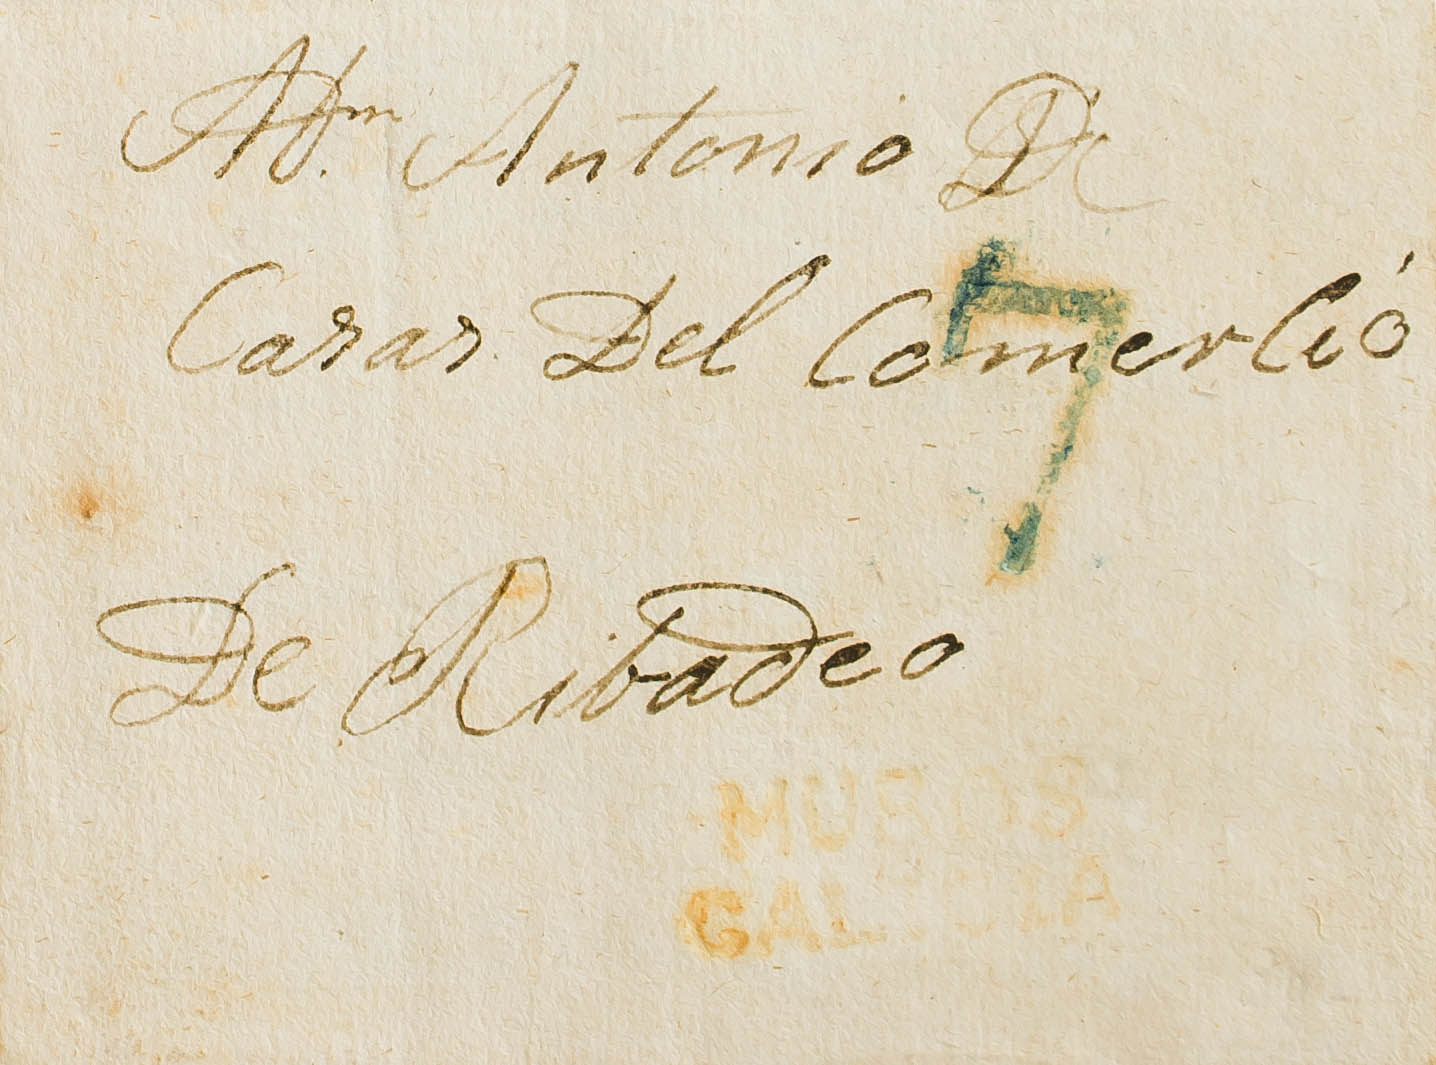 A Dn. Antonio De
Casas Del Comercio
7
De Ribadeo
MUROS
GALICIA